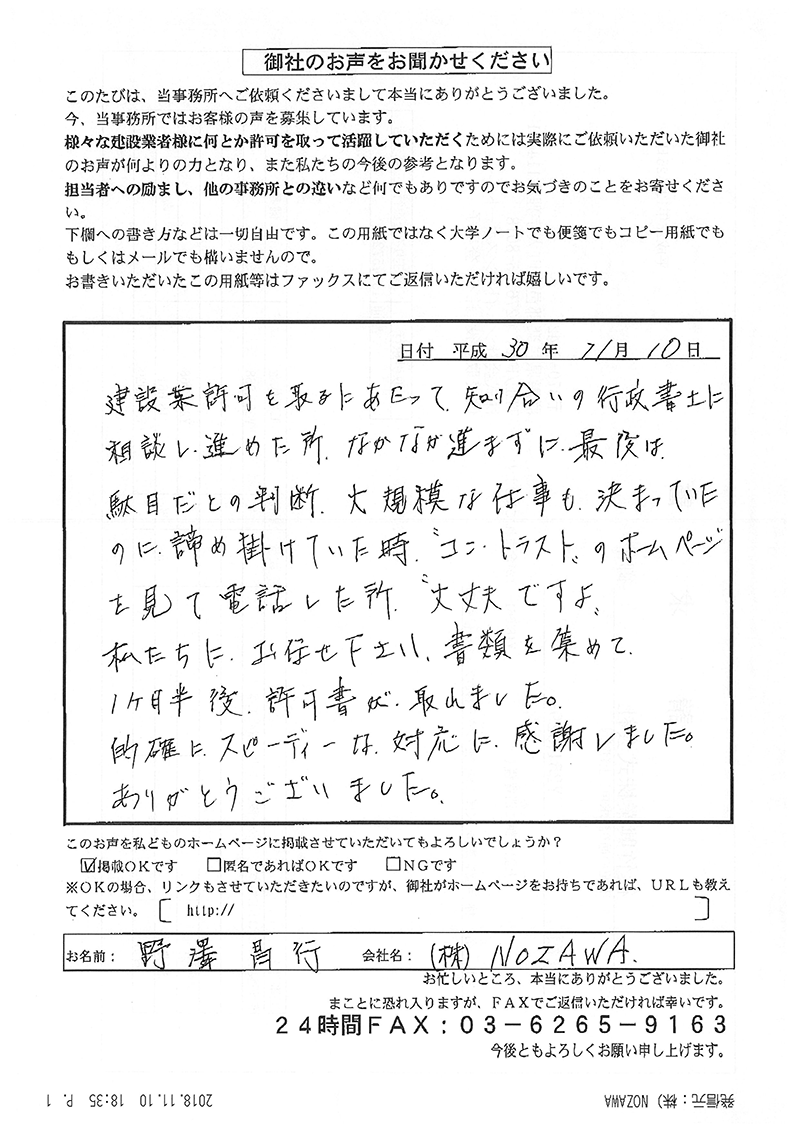 御社のお声をお聞かせください
このたびは、当事務所へご依頼くださいまして本当にありがとうございました。
今、当事務所ではお客様の声を募集しています。
様々な建設業者様に何とか許可を取って活躍していただくためには実際にご依頼いただいた御社
のお声が何よりの力となり、また私たちの今後の参考となります。
担当者への励まし、他の事務所との違いなど何でもありですのでお気づきのことをお寄せくださ
い。
下欄への書き方などは一切自由です。この用紙ではなく大学ノートでも便箋でもコピー用紙でも
もしくはメールでも構いませんので。
お書きいただいたこの用紙等はファックスにてご返信いただければ嬉しいです。
日付 平成 30 年 11月 10日
建設業許可を取るにあたって、知り合いの行政書士に
相談し、進めた所、なかなか進まずに、最後は、
駄目だとの判断、大規模な仕事も、決まっていた
のに、諦め掛けていた時、〝コン・トラスト〟のホームページ
を見て電話した所、〝大丈夫ですよ〟
私たちに、お任せ下さい、書類を集めて、
1ヶ月半後、許可書が、取れました。
的確に、スピーディーな、対応に、感謝しました。
ありがとうございました。
このお声を私どものホームページに掲載させていただいてもよろしいでしょうか？
☑掲載OKです □匿名であればOKです □NGです
※OKの場合、リンクもさせていただきたいのですが、御社がホームページをお持ちであれば、URLも教え
てください。［ http:// ］
お名前： 野澤 昌行 会社名： (株) NOZAWA.
お忙しいところ、本当にありがとうございました。
まことに恐れ入りますが、FAXでご返信いただければ幸いです。
24時間FAX：03-6265-9163
今後ともよろしくお願い申し上げます。
発信元：株）NOZAWA 2018.11.10 18:35 P. 1